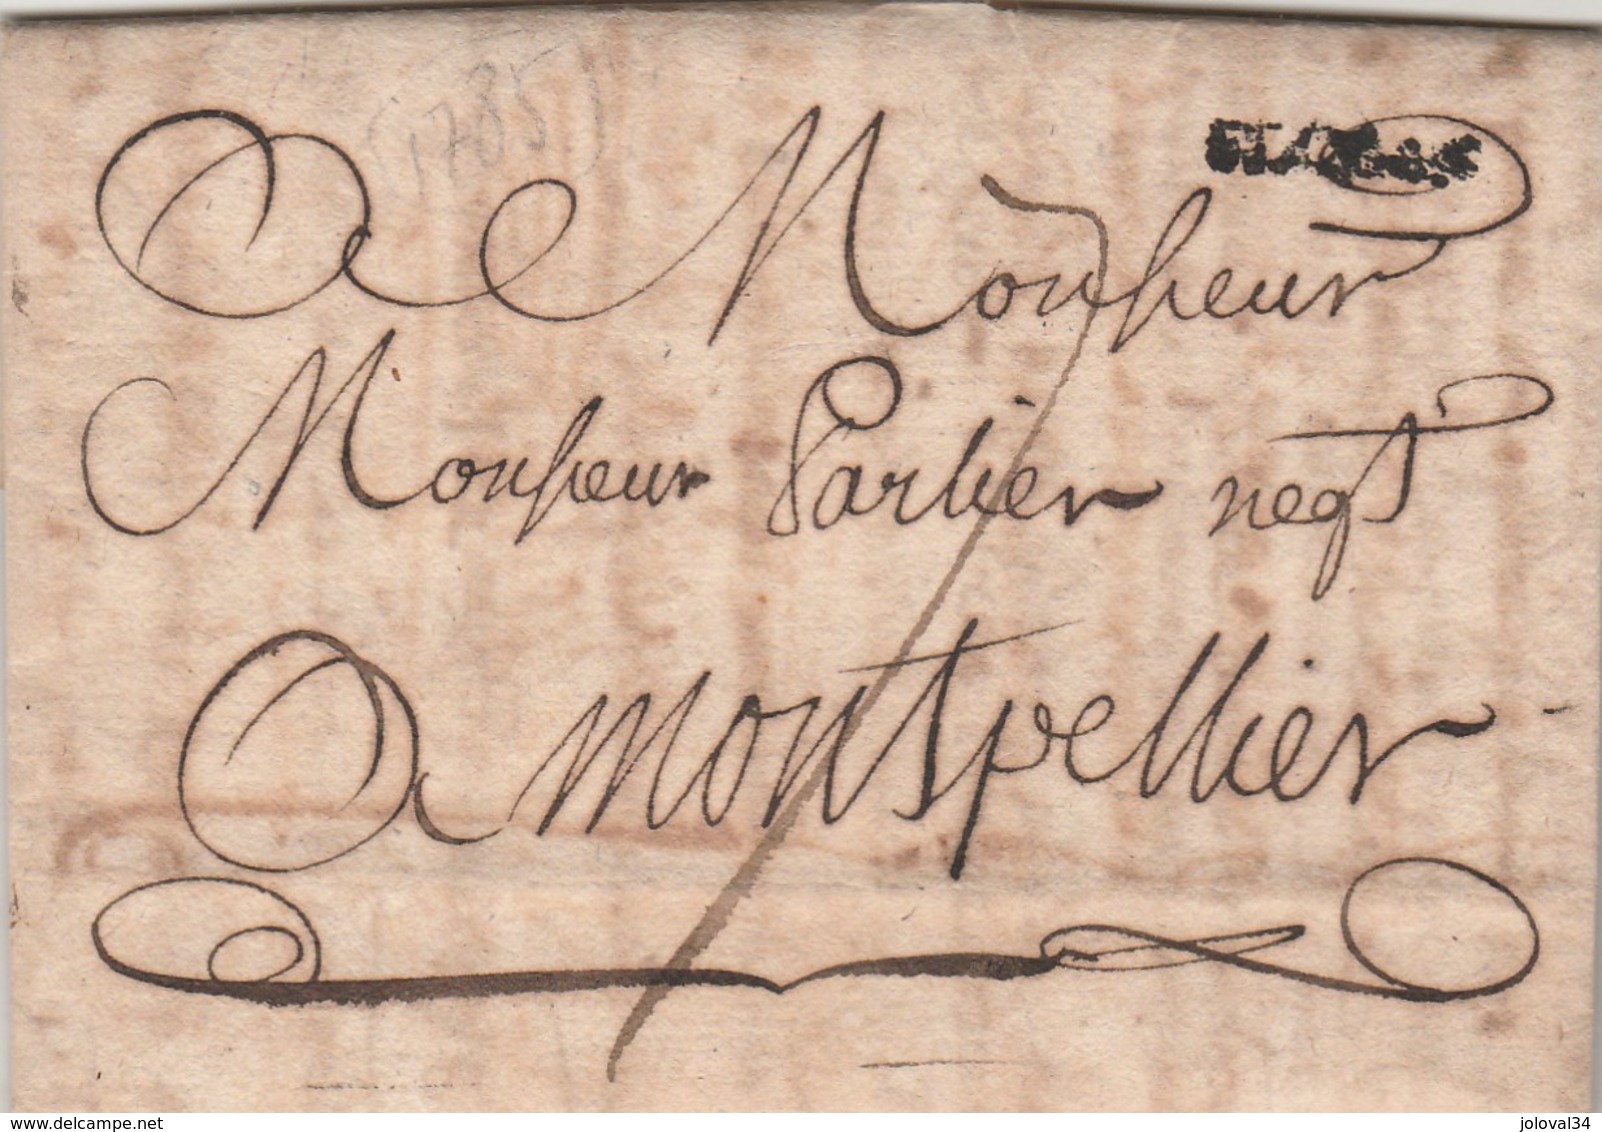 (1785)
A Monsieur
Monsieur Parlier negt
A montpellier
7
delcampe.net
joloval34